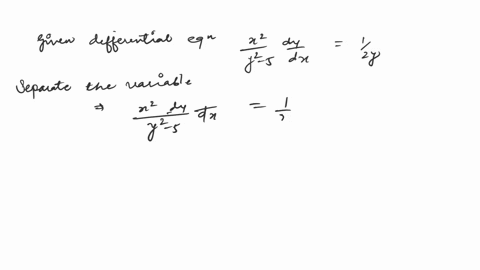 Given differential eqn x²/(y²-5) dy/dx = 1/2y
Separate the variable
⇒ x² dy/(y²-5) dx = 1/2